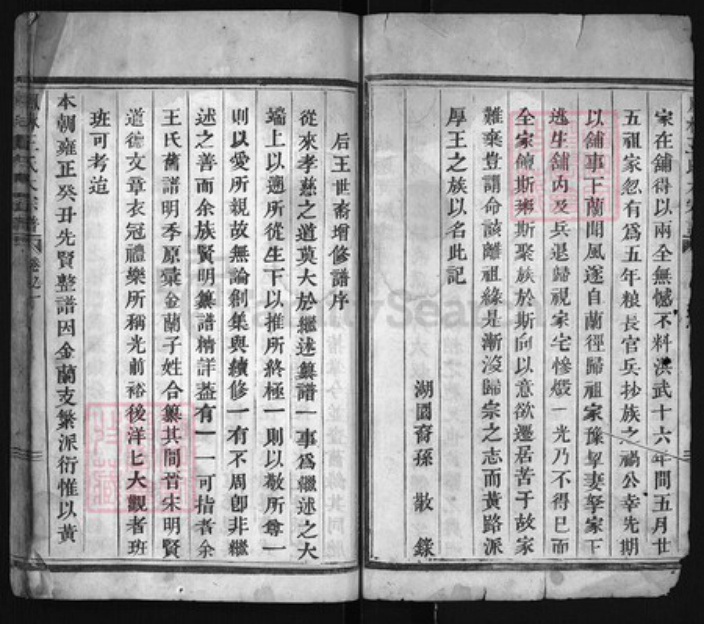 家在舖得以兩全無憾不料洪武十六年間五月廿
五祖家忽有爲五年粮長官兵抄族之禍公幸先期
以舖事下蘭聞風遂自蘭徑歸祖家豫挈妻孥家下
逃生舖內及兵退歸視家宅慘燬一光乃不得已而
全家饘斯粥斯聚族於斯向以意欲遷居苦于故家
難棄豈謂命該離祖緣是漸沒歸宗之志而黃路派
厚王之族以名此記
湖園裔孫 散 錄
后王世裔增修譜序
從來孝慈之道莫大於繼述纂譜一事爲繼述之大
端上以遡所從生下以推所終極一則以敬所尊一
則以愛所親故無論創集與續修一有不周卽非繼
述之善而余族賢明纂譜精詳葢有一一可指者余
王氏舊譜明季原彙金蘭子姓合纂其間晉宋明賢
道德文章衣冠禮樂所稱光前裕後洋七大觀者班
班可考迨
本朝雍正癸丑先賢整譜因金蘭支繁派衍惟以黃
林王氏大宗譜 卷之一
FamilySearch